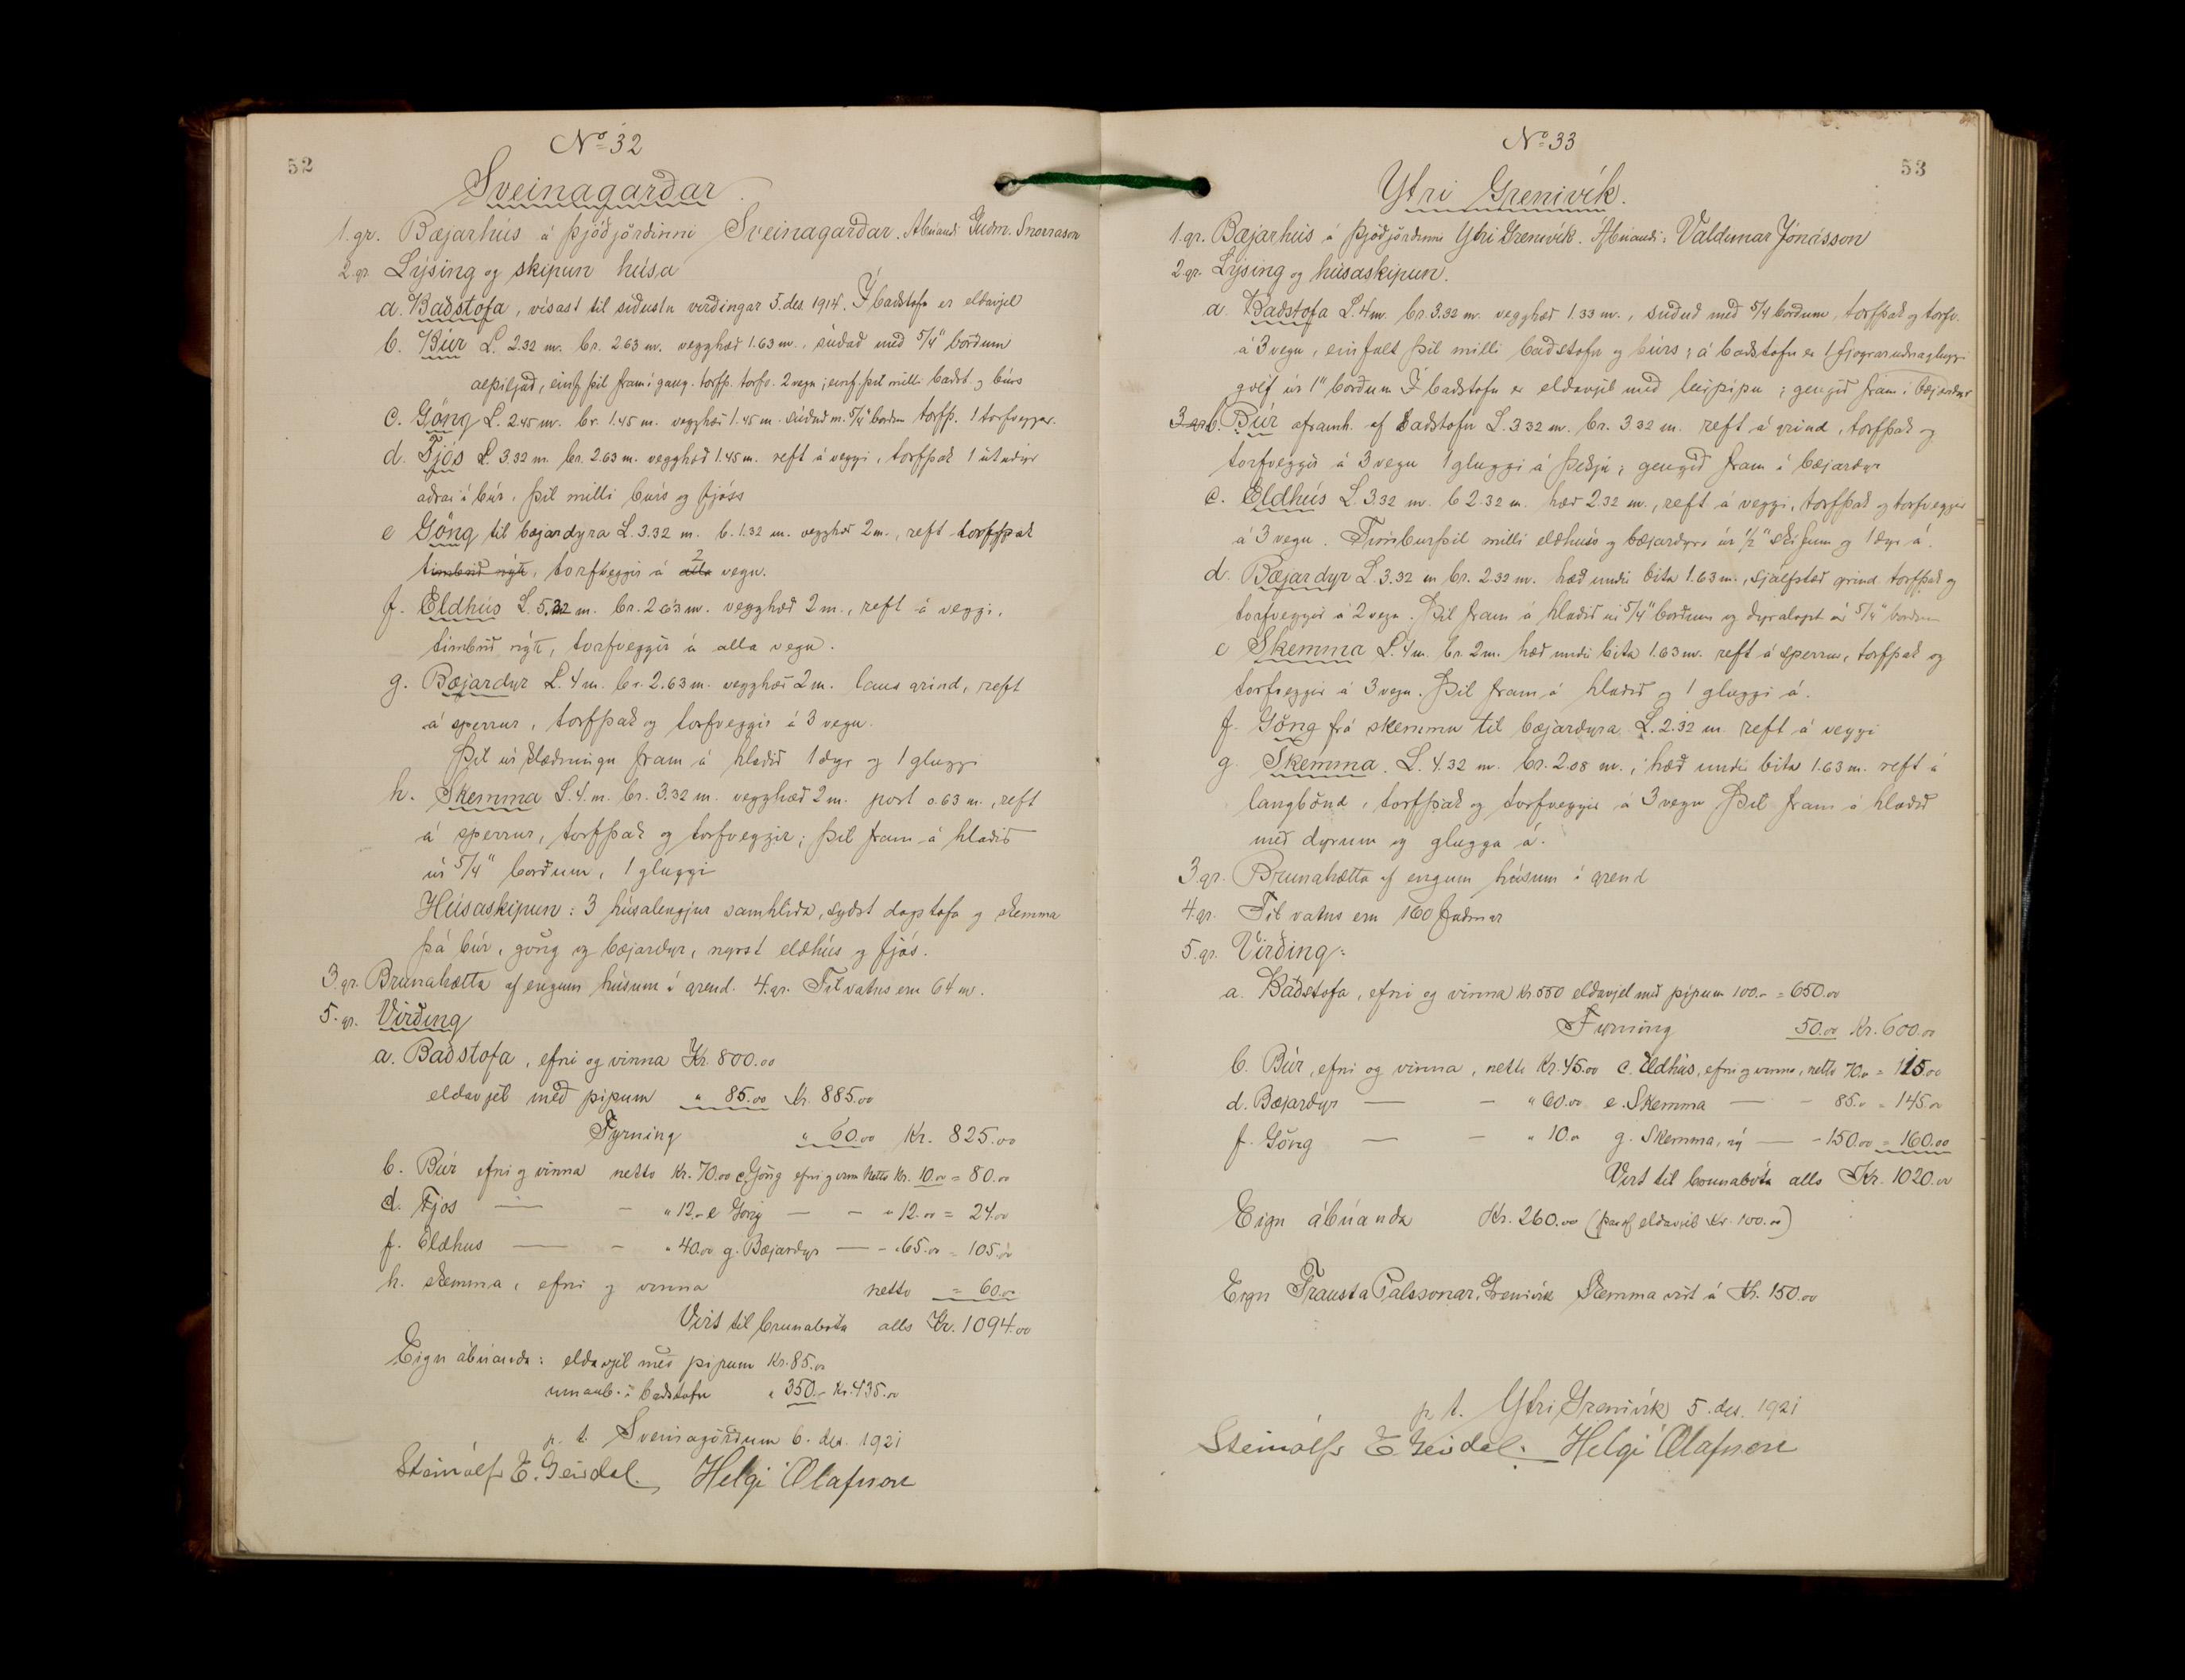 52
No 32
Sveinagarðar
1. gr. Bæjarhús á þjóðjörðinni Sveinagarðar. Ábúandi Guðm. Snorrason
2. gr. Lýsing og skipun húsa
a. Baðstofa, vísast til síðustu virðingar 5. des. 1914. Í baðstofu er eldavjel
b. Búr L. 2.32 m. br. 2.63 m. vegghæð 1.63 m., súðað með 5/4" borðum
alþiljað, einf. þil fram í gang. torfþ. torfv. 2 vegu; einf. þil milli baðst. og búrs
c. Göng L. 2.45 m. br. 1.45 m. vegghæð 1.45 m. súðuð m. 5/4" borðum torfþ. 1 torfveggur.
d. Fjós L. 3.32 m. br. 2.63 m. vegghæð 1.45 m. reft á veggi, torfþak 1 útudyr
aðrar í búr. Þil milli búrs og fjóss
e Göng til bæjardyra L. 3.32 m. b. 1.32 m. vegghæð 2 m., reft torfþak
timbrið nýtt, torfveggir á alla 2 vegu.
f. Eldhús L. 5.32 m. br. 2.63 m. vegghæð 2 m., reft á veggi,
timbrið nýtt, torfveggir á alla vegu.
g. Bæjardyr L. 4 m. br. 2.63 m. vegghæð 2 m. laus grind, reft
á sperrur, torfþak og torfveggir á 3 vegu.
Þil úr klæðningu fram á hlaðið 1 dyr og 1 gluggi
h. Skemma L. 4. m. br. 3.32 m. vegghæð 2 m. port 0.63 m., reft
á sperrur, torfþak og torfveggir; þil fram á hlaðið
úr 5/4" borðum, 1 gluggi
Húsaskipun: 3 húsalengjur samhliða, syðst dagstofa og skemma
þá búr, göng og bæjardyr, nyrst eldhús og fjós.
3. gr. Brunahætta af engum húsum í grend. 4. gr. Til vatns eru 64 m.
5. gr. Virðing
a. Baðstofa, efni og vinna Kr. 800.00
eldavjel með pípum " 85.00 Kr. 885.00
Fyrning " 60.00 Kr. 825.00
b. Búr efni og vinna netto Kr. 70.00 c. Göng efni og vinna netto Kr. 10.00 = 80.00
d. Fjos — - " 12.- e Göng — - " 12.00 = 24.00
f. Eldhus — - " 40.00 g. Bæjardyr — - " 65.00 = 105.00
h. skemma, efni og vinna netto = 60.00
Virt til brunabóta alls Kr. 1094.00
Eign ábúanda: eldavjel með pípum Kr. 85.00
í baðstofu " 350.- Kr. 435.00
p. t. Sveinagörðum 6. des. 1921
Steinólfr E. Geirdal. Helgi Ólafsson
53
No 33
Ytri Grenivík.
1. gr. Bæjarhús á þjóðjörðinni Ytri Grenivík. Ábúandi: Valdimar Jónásson
2 gr. Lýsing og húsaskipun.
a. Baðstofa L. 4 m. br. 3.32 m. vegghæð 1.33 m., súðuð með 5/4 borðum, torfþak og torfv.
á 3 vegu, einfalt þil milli baðstofu og búrs; á baðstofu er 1 fjögrarúðna gluggi
gólf úr 1" borðum Í baðstofu er eldavjel með leirpípu; gengið fram í bæjardyr
3 gr b. Búr áframh. af baðstofu L. 3 32 m. br. 3 32 m. reft á grind, torfþak og
torfveggir á 3 vegu 1 gluggi á þekju; gengið fram í bæjardyr
c. Eldhús L. 3.32 m. b 2.32 m. hæð 2.32 m., reft á veggi, torfþak og torfveggir
á 3 vegu. Timburþil milli eldhúss og bæjardyra úr 1/2" skífum og 1 dyr á.
d. Bæjardyr L. 3.32 m br. 2.32 m. hæð undir bita 1.63 m., sjálfstæð grind torfþak og
torfveggir á 2 vegu. Þil fram á hlaðið úr 5/4" borðum og dyraloft úr 5/4" borðum
e Skemma L. 4 m. br. 2 m. hæð undir bita 1.63 m. reft á sperrur, torfþak og
torfveggir á 3 vegu. Þil fram á hlaðið og 1 gluggi á.
f. Göng frá skemmu til bæjardyra L. 2.32 m reft á veggi
g. Skemma. L. 4.32 m. br. 2.08 m., hæð undir bita 1.63 m. reft á
langbönd, torfþak og torfveggir á 3 vegu Þil fram á hlaðið
með dyrum og glugga á.
3. gr. Brunahætta af engum húsum í grend
4. gr. Til vatns eru 160 faðmar
5. gr. Virðing:
a. Baðstofa, efni og vinna Kr 550 eldavjel með pípum 100.- = 650.00
Fyrning 50.00 Kr. 600.00
b. Búr, efni og vinna, netto Kr. 45.00 c. Eldhús, efni og vinna, netto 70.- = 115.00
d. Bæjardyr — - " 60.00 e. Skemma — - 85.- = 145.00
f. Göng — - " 10.00 g. Skemma, ný — - 150.00 = 160.00
Virt til brunabóta alls Kr. 1020.00
Eign ábúanda Kr. 260.00 (þar af eldavjel Kr. 100.00)
Eign Trausta Palssonar, Grenivík Skemma virt á Kr. 150.00
p. t. Ytri Grenivík 5. des. 1921
Steinólfr E. Geirdal. Helgi Ólafsson